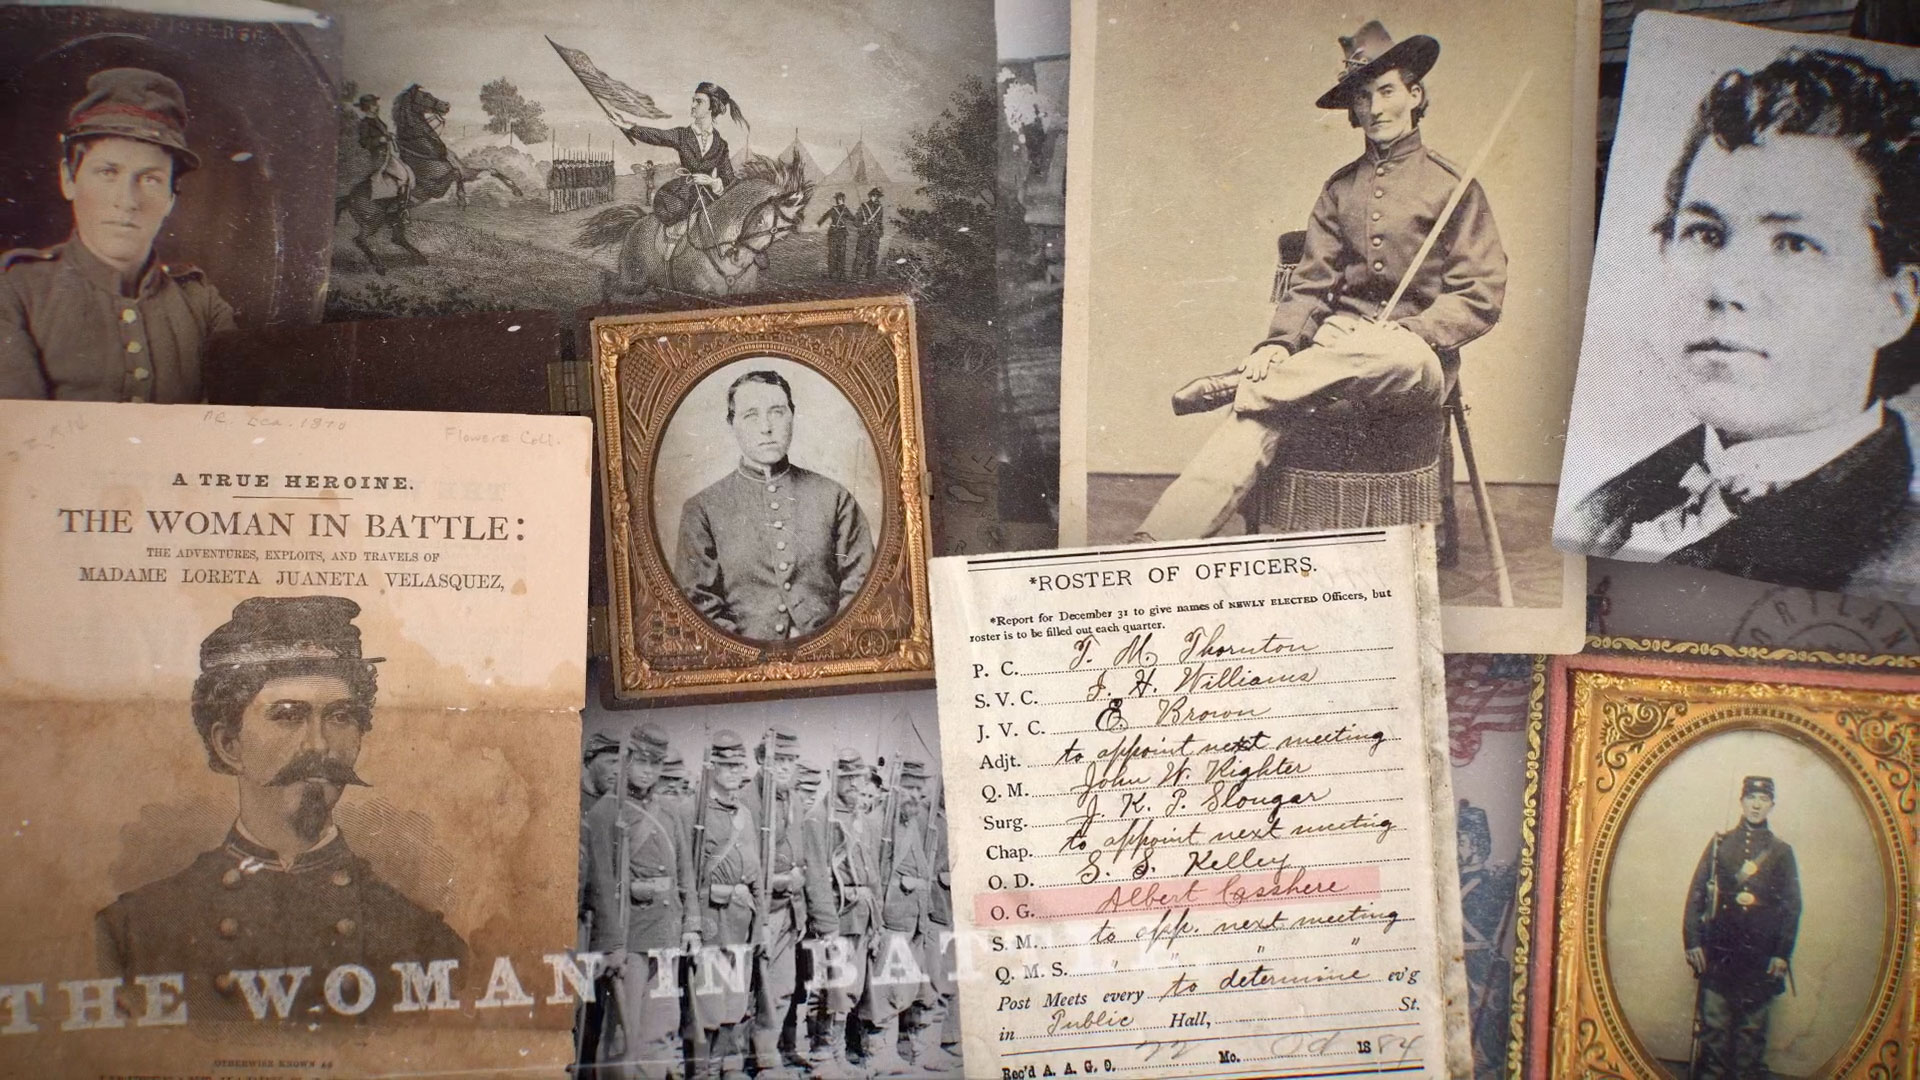 Flowers Coll.
A TRUE HEROINE.
THE WOMAN IN BATTLE:
THE ADVENTURES, EXPLOITS, AND TRAVELS OF
MADAME LORETA JUANETA VELASQUEZ,
OTHERWISE KNOWN AS
THE WOMAN IN BATTLE
*ROSTER OF OFFICERS.
*Report for December 31 to give names of NEWLY ELECTED Officers, but
roster is to be filled out each quarter.
P. C. T. M. Thornton
S. V. C. J. H. Williams
J. V. C. E. Brown
Adjt. to appoint next meeting
Q. M. John W. Righter
Surg. J. K. P. Slougar
Chap. to appoint next meeting
O. D. S. S. Kelley
O. G. Albert Casshere
S. M. to app. next meeting
Q. M. S. " " " "
Post Meets every to determine ev'g
in Public Hall, St.
Rec'd A. A. G. O. 22 Mo. Od 1884